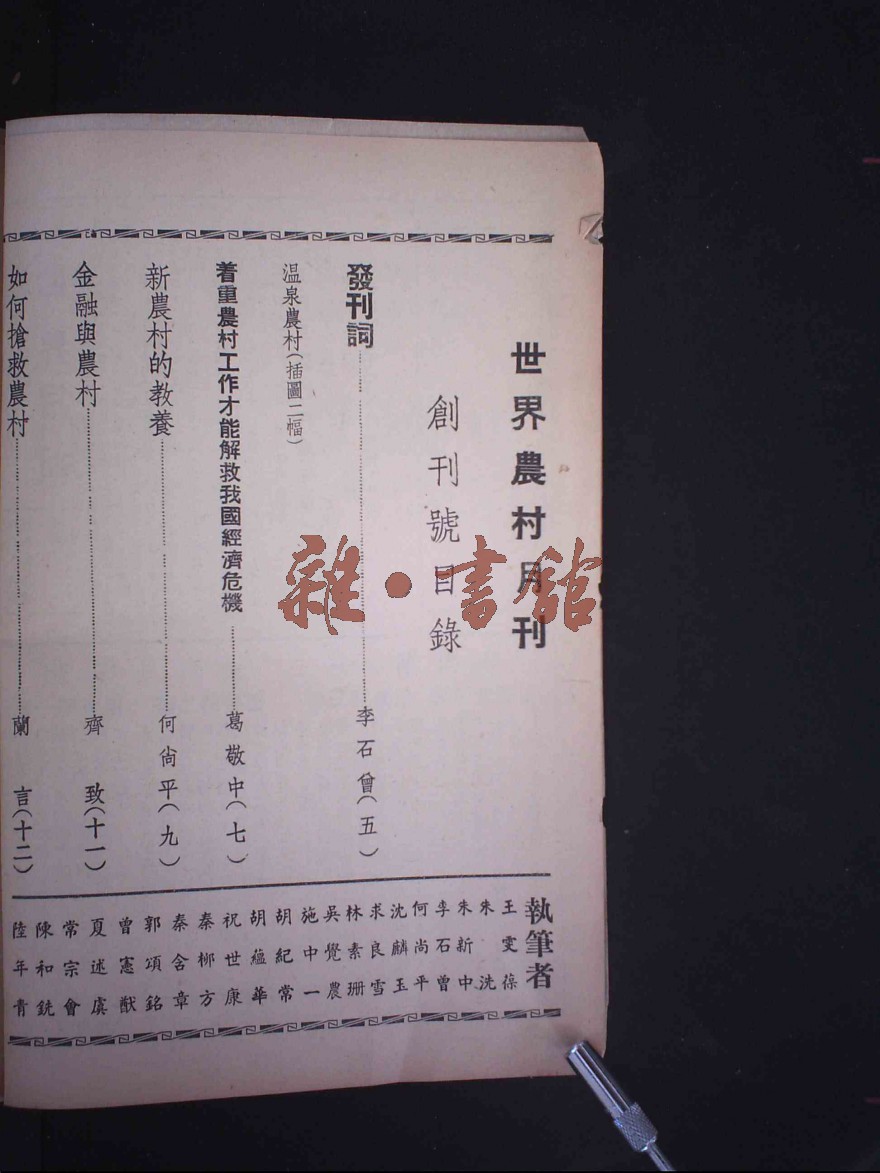 世界農村月刊
創刊號目錄
發刊詞……李石曾(五)
温泉農村(插圖二幅)
着重農村工作才能解救我國經濟危機……葛敬中(七)
新農村的教養……何尚平(九)
金融與農村……齊致(十一)
如何搶救農村……蘭言(十二)
執筆者
王雯葆
朱洗
朱新中
李石曾
何尚平
沈麟玉
求良雪
林素珊
吳覺農
施中一
胡紀常
胡蘊華
祝世康
秦柳方
秦含章
郭頌銘
曾憲猷
夏述虞
常宗會
陳和銑
陸年青
雜·書館